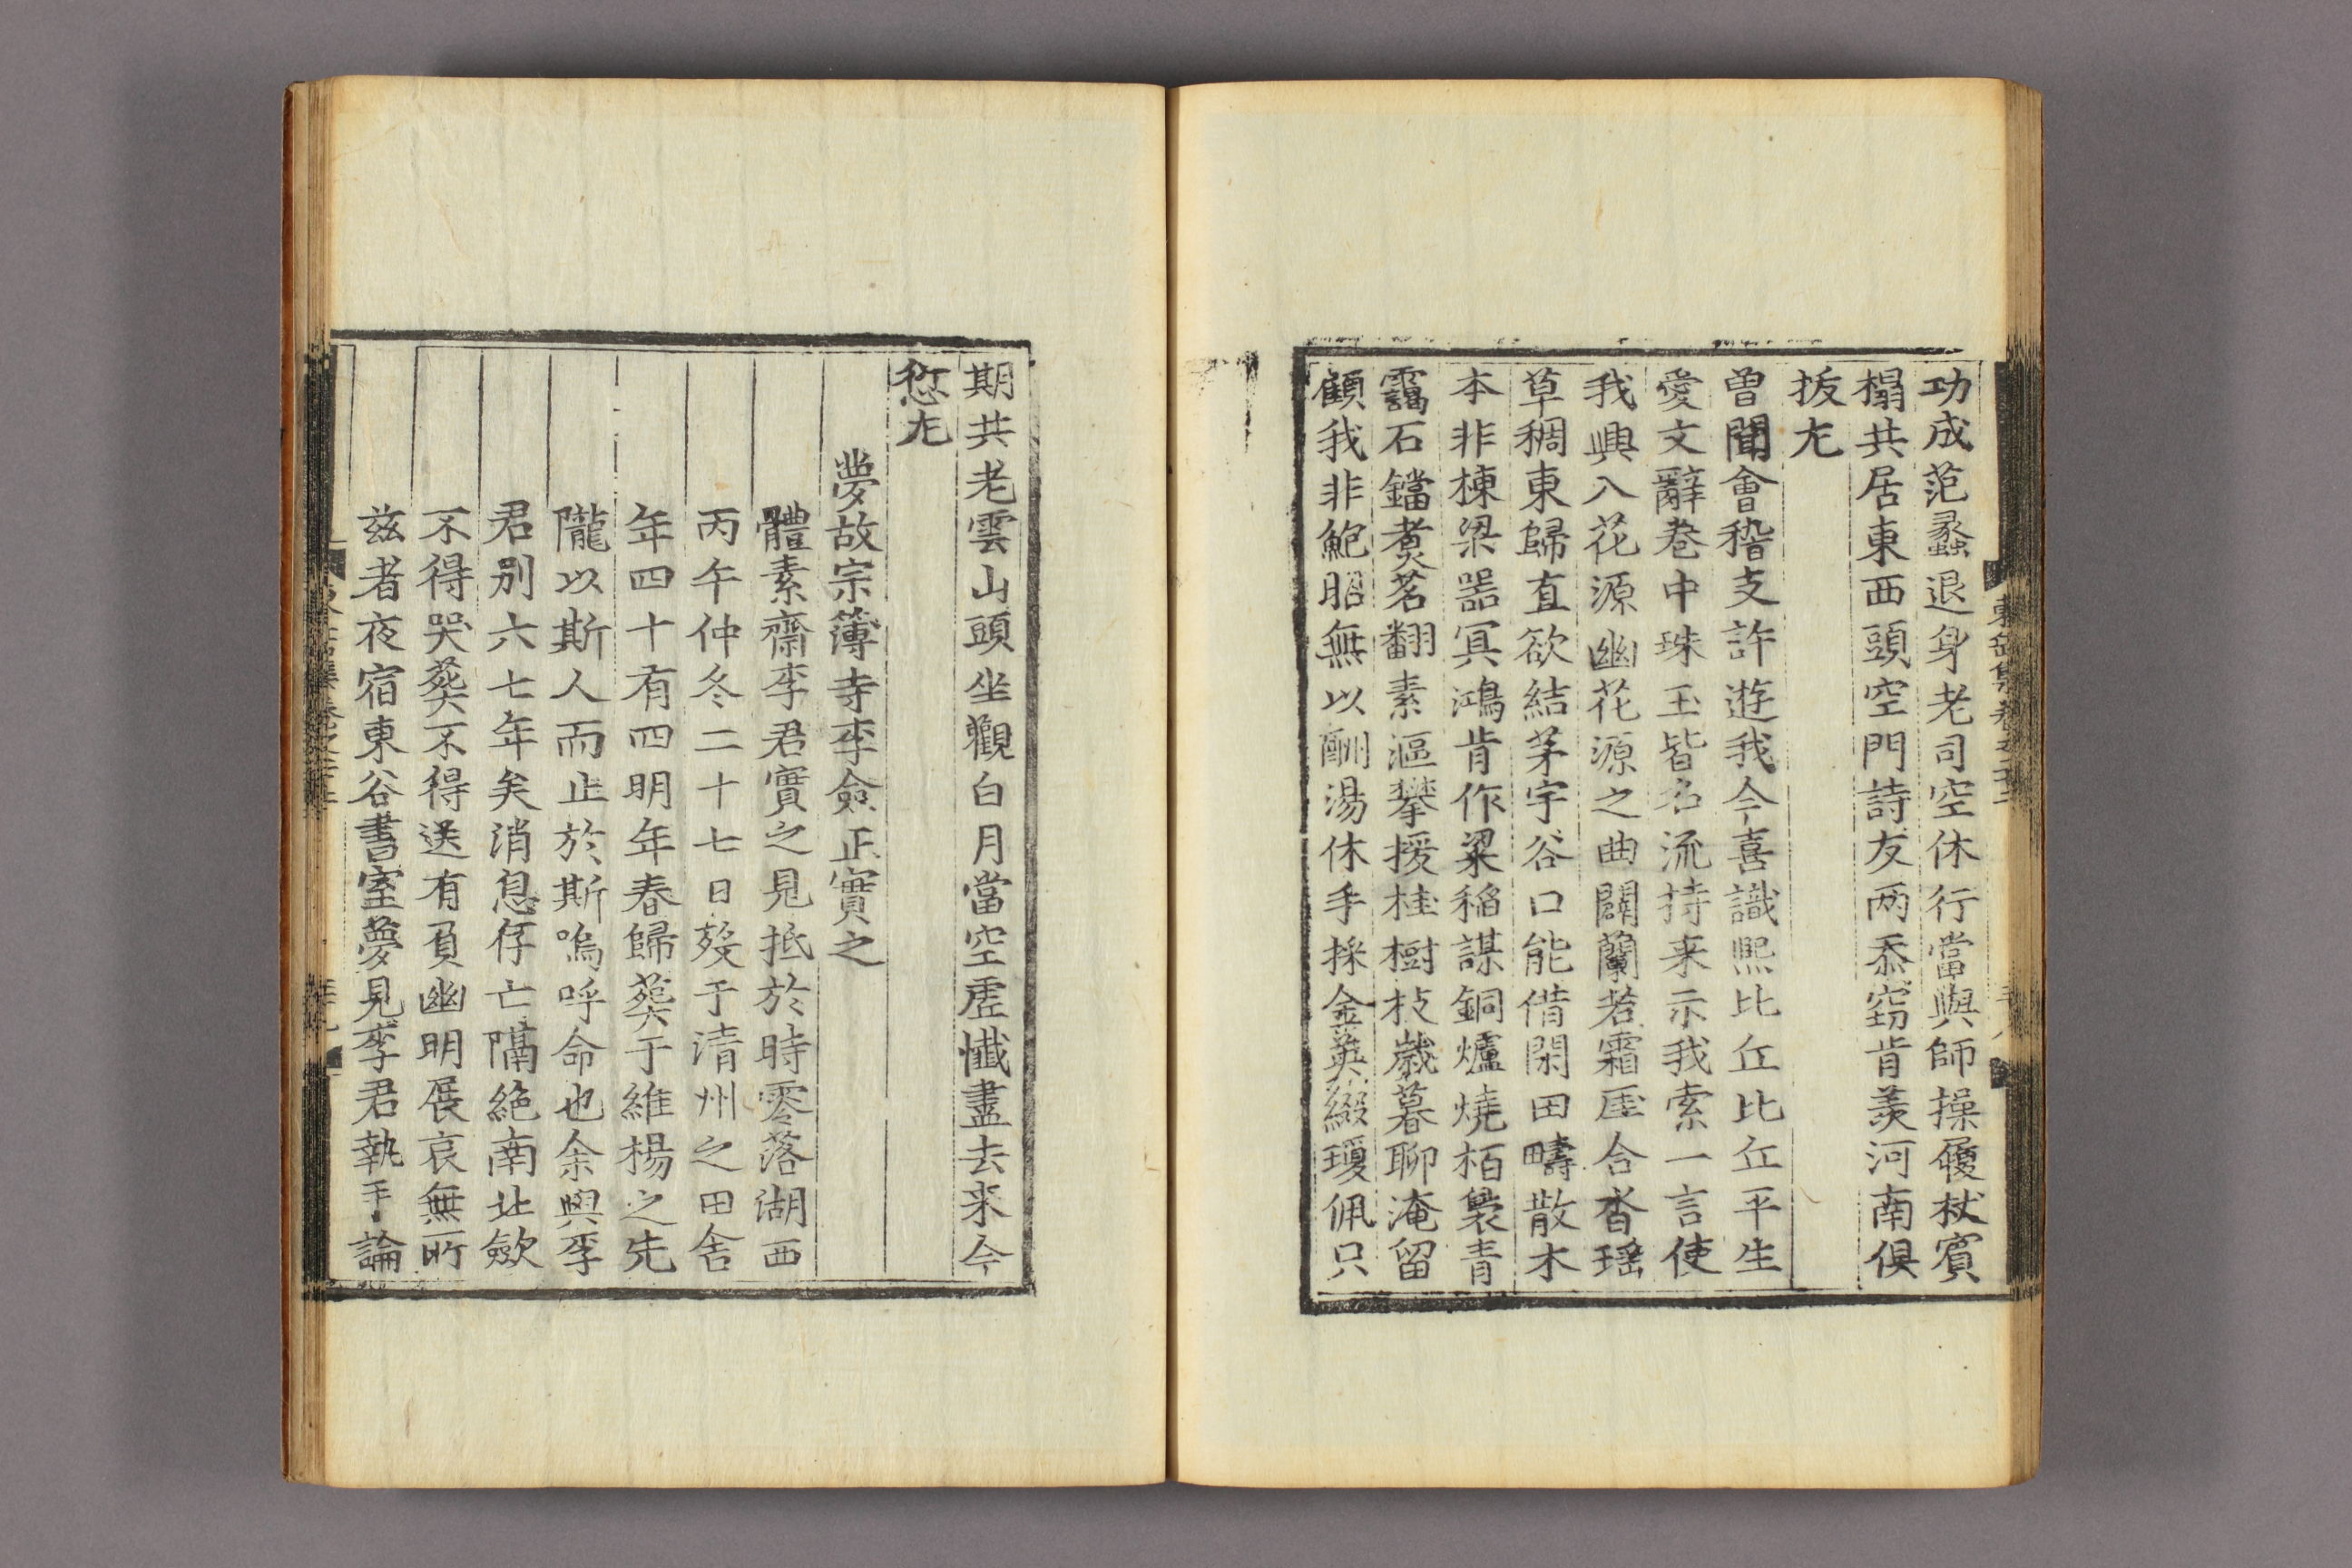 功成范蠡退身老司空休行當與師操屨杖賓
榻共居東西頭空門詩友两忝窃肯羨河南俱
拔尤
曽聞會稽支許遊我今喜識熙比丘比丘平生
愛文辭卷中珠玉皆名流持来示我索一言使
我興入花源幽花源之曲闢蘭若霜厓合沓瑶
草稠東歸直欲結茅宇谷口能借閑田疇散木
本非棟梁器冥鴻肯作粱稻謀銅爐燒栢裊青
靄石鐺煮茗翻素漚攀援桂樹枝歲暮聊淹留
顧我非鮑昭無以酬湯休手採金英綴瓊佩只
東岳集卷之二十
期共老雲山頭坐觀白月當空虛懺盡去来今
愆尤
夢故宗簿寺李僉正實之
體素齋李君實之見抵於時零落湖西
丙午仲冬二十七日歿于清州之田舍
年四十有四明年春歸葬于維楊之先
隴以斯人而止於斯嗚呼命也余與李
君别六七年矣消息存亡隔絶南北斂
不得哭葬不得送有負幽明展哀無所
兹者夜宿東谷書室夢見李君執手論